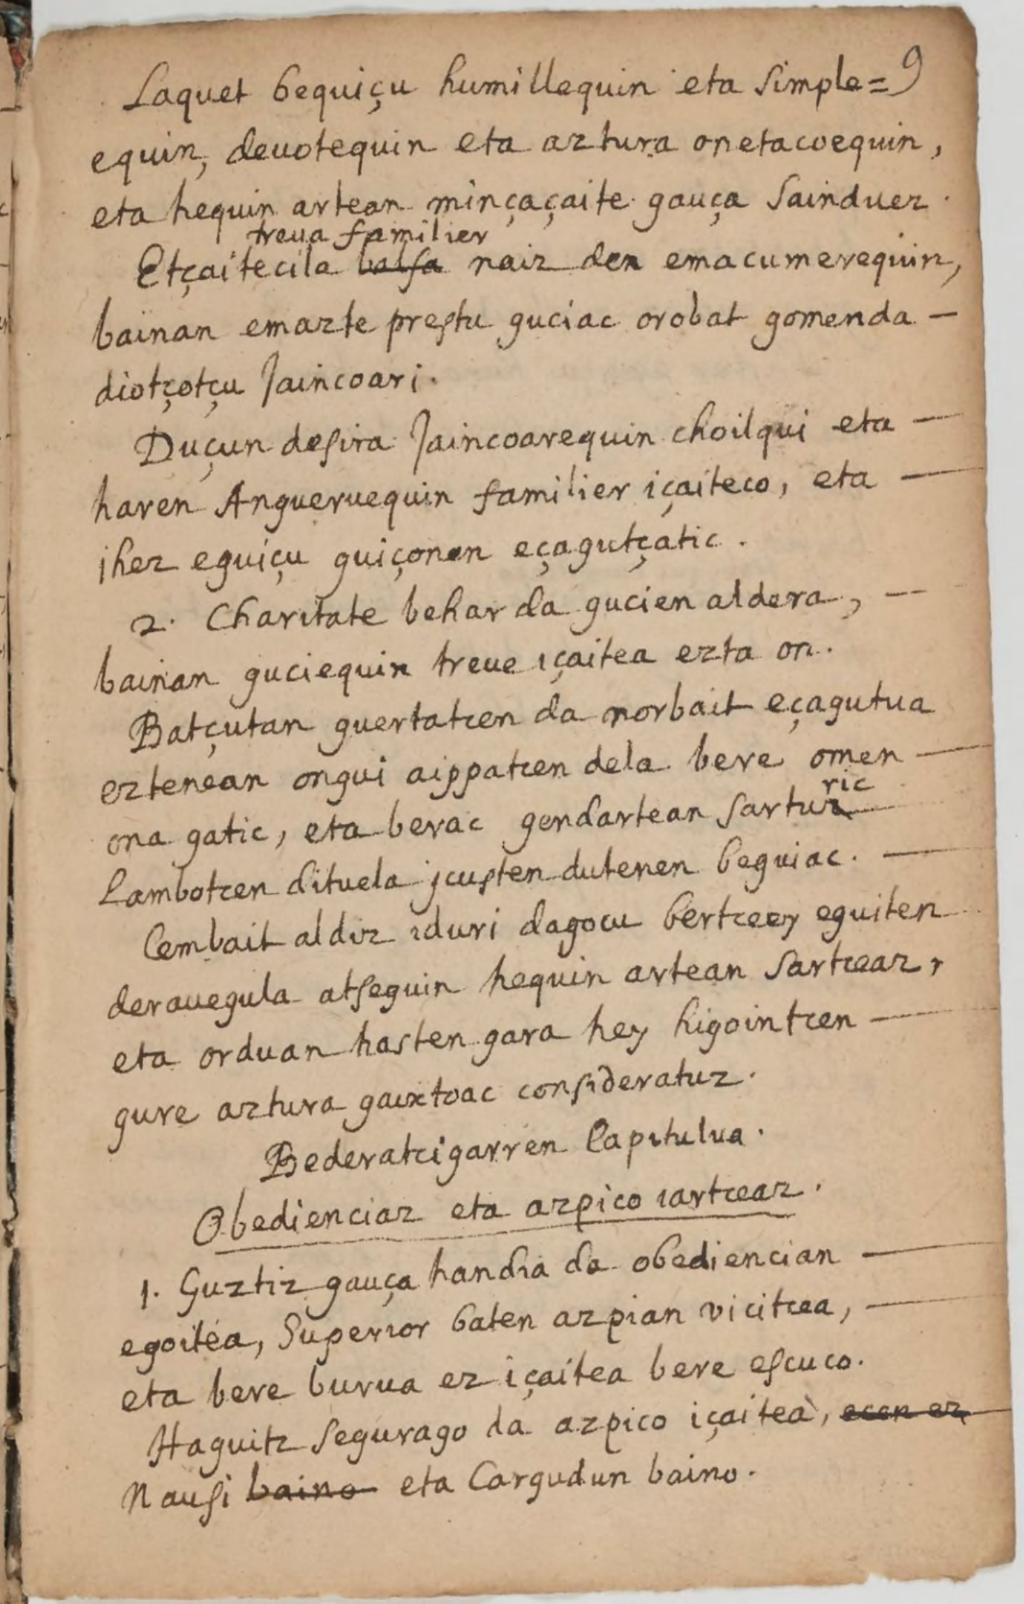 9
Laquet bequiçu humillequin eta simple=
equin, deuotequin eta aztura onetacoequin,
eta hequin artean minçaçaite gauça sainduez.
treua familier
Etçaitecila balsa naiz den emacumerequin,
bainan emazte prestu guciac orobat gomenda —
diotçotçu Jaincoari.
Duçun desira Jaincoarequin choilqui eta —
haren Angueruequin familier içaiteco, eta —
ihez eguiçu guiçonen eçagutçatic.
2. Charitate behar da gucien aldera, —
bainan guciequin treue içaitea ezta on.
Batçutan guertatcen da norbait eçagutua
eztenean ongui aippatcen dela bere omen —
ric
ona gatic, eta berac gendartean sartuz
Lambotcen dituela jcusten dutenen beguiac. —
Cembait aldiz iduri dagocu bertceey eguiten
derauegula atseguin hequin artean sartceaz,
eta orduan hasten gara hey higointcen —
gure aztura gaixtoac consideratuz.
Bederatcigarren Capitulua.
Obedienciaz eta azpico iartceaz.
1. Guztiz gauça handia da obediencian —
egoitea, Superior baten azpian vicitcea, —
eta bere burua ez içaitea bere escuco.
Haguitz segurago da azpico içaitea, ecen ez
Nausi baino eta Cargudun baino.